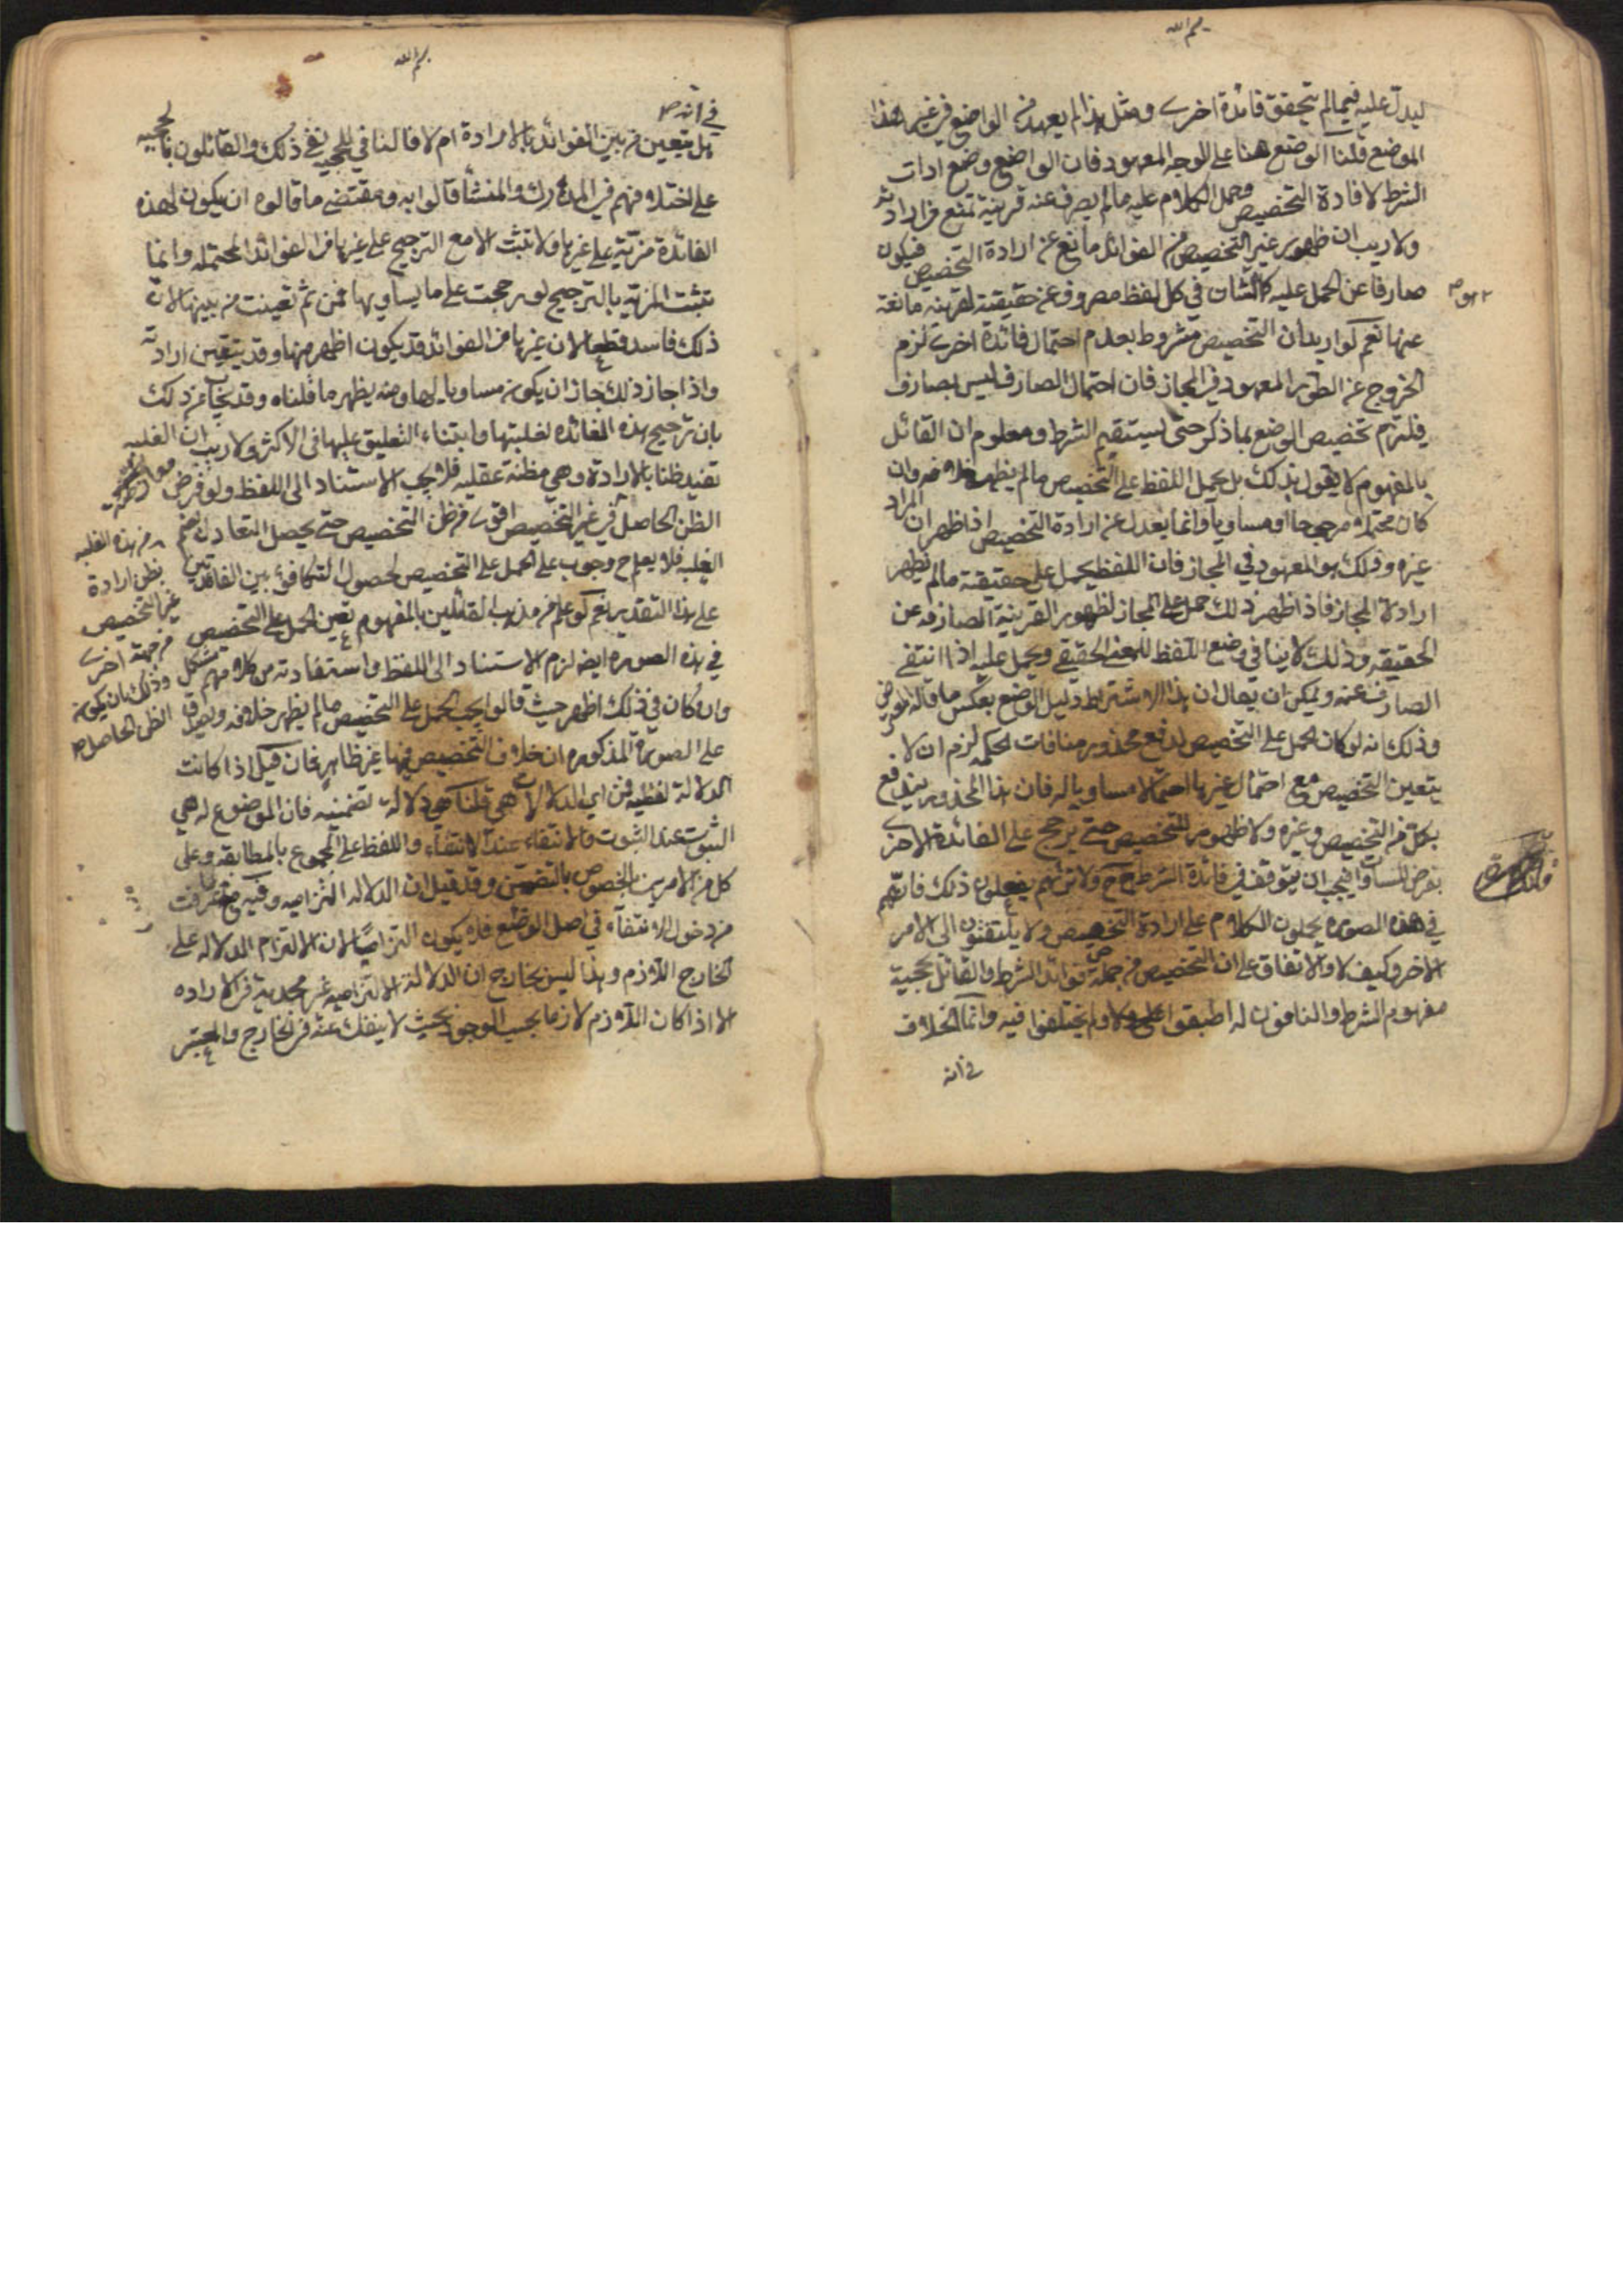 بسم الله
ليدل عليه فيما لم يتحقق فائدة اخرى ومثل هذا لم يعهد من الواضع في غير هذا
الموضع قلنا الوضع هنا على الوجه المعهود فان الواضع وضع ادات
الشرط لافادة التخصيص وحمل الكلام عليه ما لم يصرف عنه قرينة تمنع من ارادته
ولا ريب ان ظهور غير التخصيص من الفوائد مانع عن ارادة التخصيص فيكون
صارفا عن الحمل عليه كالشان في كل لفظ مصروف عن حقيقته لقرينة مانعة
عنها نعم لو اريد ان التخصيص مشروط بعدم احتمال فائدة اخرى لزم
الخروج عن الطور المعهود في المجاز فان احتمال الصارف ليس بصارف
فيلتزم تخصيص الوضع بما ذكر حتى يستقيم الشرط ومعلوم ان القائل
بالمفهوم لا يقول بذلك بل يحمل اللفظ على التخصيص ما لم يظهر خلافه وان
كان محتملا مرجوحا او مساويا وانما يعدل عن ارادة التخصيص اذا ظهر ان المراد
غيره وذلك هو المعهود في المجاز فان اللفظ يحمل على حقيقته ما لم يظهر
ارادة المجاز فاذا ظهر ذلك حمل على المجاز لظهور القرينة الصارفة عن
الحقيقة وذلك لا ينافي وضع اللفظ للمعنى الحقيقي ويحمل عليه اذا انتفى
الصارف عنه ويمكن ان يقال ان هذا الاشتراط دليل الوضع بعكس ما قاله
وذلك انه لو كان الحمل على التخصيص لدفع محذور منافات الحكمة لزم ان لا
يتعين التخصيص مع احتمال غيرها احتمالا مساويا له فان هذا المحذور يندفع
بكل من التخصيص وغيره ولا ظهور للتخصيص حتى يرجح على الفائدة الاخرى
بفرض المساواة فيجب ان يتوقف في فائدة الشرط ح ولا تراهم يفعلون ذلك فانهم
في هذه الصورة يحملون الكلام على ارادة التخصيص ولا يلتفتون الى الامر
الاخر وكيف لا والاتفاق على ان التخصيص من جملة فوائد الشرط والقائل بحجية
مفهوم الشرط والنافون له اطبقوا على ولم يختلفوا فيه وانما الخلاف
في انه
بسم الله
في انه
هل يتعين من بين الفوائد بالارادة ام لا فالنافي للحجية نفى ذلك والقائلون بالحجية
على اختلافهم في المدرك والمنشأ قالوا به ومقتضى ما قالوه ان يكون لهذه
الفائدة مزية على غيرها ولا تثبت الا مع الترجيح على غيرها من الفوائد المحتملة وانما
تثبت المزية بالترجيح لو رجحت على ما يساويها فمن ثم تعينت من بينها لان
ذلك فاسد قطعا لان غيرها من الفوائد قد يكون اظهر منها وقد يتعين ارادته
واذا جاز ذلك جاز ان يكون مساويا لها ومنه يظهر ما قلناه وقد يجاب عن ذلك
بان ترجيح هذه الفائدة لغلبتها وابتناء التعليق عليها في الاكثر ولا ريب ان الغلبة
تفيد ظنا بالارادة وهي مظنة عقلية فلا يجب الاستناد الى اللفظ ولو فرض
الظن الحاصل في غير التخصيص اقوى من ظن التخصيص حتى يحصل التعادل
الغلبة فلا يعلم ح وجوب على الحمل على التخصيص لحصول التكافؤ بين الفائدتين
من هذه الغلبة
بظن ارادة
غير التخصيص
من جهة اخرى
وذلك بان يكون
الظن الحاصل
على هذا التقدير نعم لو علم من مذهب القائلين بالمفهوم تعين الحمل على التخصيص
في هذه الصورة ايضا لزم الاستناد الى اللفظ واستفادته من كلامهم مشكل
وان كان في ذلك اظهر حيث قالوا يجب الحمل على التخصيص ما لم يظهر خلافه
على الصورة المذكورة ان خلاف التخصيص فيها غير ظاهر فان قيل اذا كانت
الدلالة لفظية فمن اي الدلالات هي قلنا هي دلالة تضمنية فان الموضوع له هي
الثبوت عند الثبوت والانتفاء عند الانتفاء واللفظ على المجموع بالمطابقة وعلى
كل من الامرين بالخصوص بالتضمن وقد قيل ان الدلالة التزامية وفيه ما عرفت
من دخول الانتفاء في اصل الوضع فلا يكون التزاميا لان الالتزام الدلالة على
الخارج اللازم وهذا ليس بخارج ان الدلالة الالتزامية غير مجدية في الارادة
الا اذا كان اللازم لازما بحسب الوجود بحيث لا ينفك عنه في الخارج والمعتبر